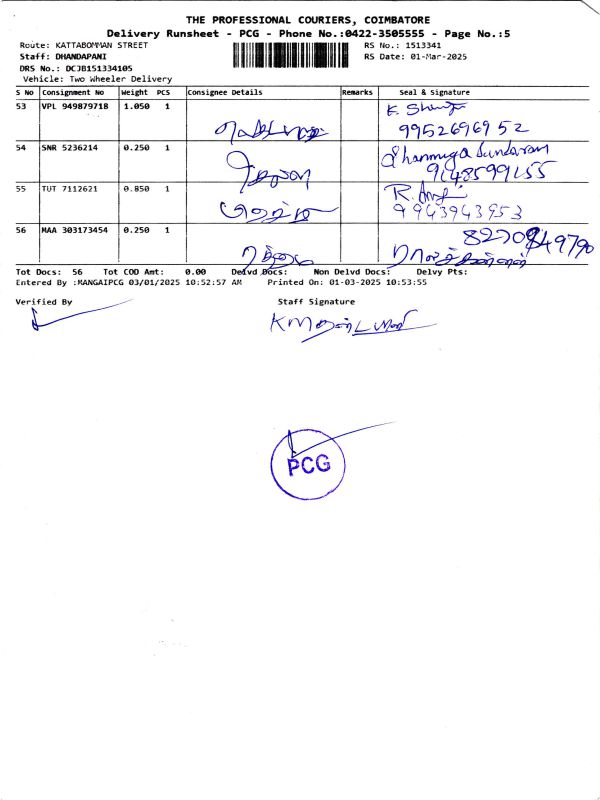 THE PROFESSIONAL COURIERS, COIMBATORE
Delivery Runsheet - PCG - Phone No.:0422-3505555 - Page No.:5
Route: KATTABOMMAN STREET RS No.: 1513341
Staff: DHANDAPANI RS Date: 01-Mar-2025
DRS No.: DCJB151334105
Vehicle: Two Wheeler Delivery
S No Consignment No Weight PCS Consignee Details Remarks Seal & Signature
53 VPL 949879718 1.050 1
9952696952
54 SNR 5236214 0.250 1 Shanmuga Sundaram
9148599155
55 TUT 7112621 0.850 1
9943943953
56 MAA 303173454 0.250 1
Tot Docs: 56 Tot COD Amt: 0.00 Delvd Docs: Non Delvd Docs: Delvy Pts:
Entered By :MANGAIPCG 03/01/2025 10:52:57 AM Printed On: 01-03-2025 10:53:55
Verified By Staff Signature
PCG